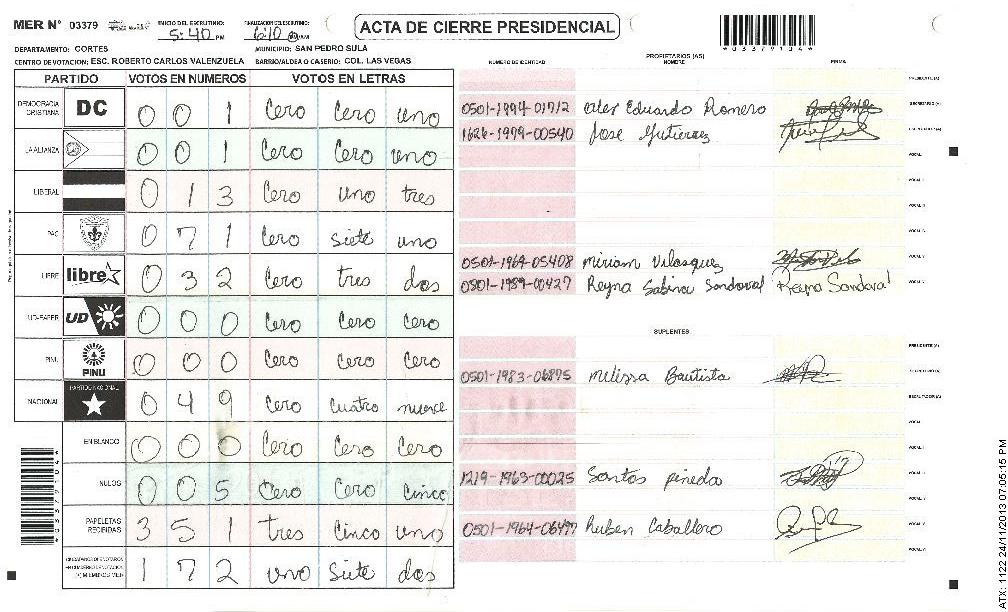 MER N° 03379 INICIO DEL ESCRUTINIO: 5:40 PM FINALIZACION ESCRUTINIO: 6:10
ACTA DE CIERRE PRESIDENCIAL
*03379104*
DEPARTAMENTO: CORTES MUNICIPIO: SAN PEDRO SULA
CENTRO DE VOTACION: ESC. ROBERTO CARLOS VALENZUELA BARRIO/ALDEA O CASERIO: COL. LAS VEGAS
PARTIDO VOTOS EN NUMEROS VOTOS EN LETRAS
DEMOCRACIA CRISTIANA DC 0 0 1 Cero Cero uno
LA ALIANZA 0 0 1 Cero Cero uno
LIBERAL 0 1 3 Cero uno tres
PAC 0 7 1 Cero siete uno
LIBRE libre 0 3 2 Cero tres dos
UD-FAPER UD 0 0 0 Cero Cero Cero
PINU PINU 0 0 0 Cero Cero Cero
NACIONAL PARTIDO NACIONAL 0 4 9 Cero cuatro nueve
EN BLANCO 0 0 0 Cero Cero Cero
NULOS 0 0 5 Cero Cero Cinco
PAPELETAS RECIBIDAS 3 5 1 tres Cinco uno
1 7 2 uno Siete dos
NUMERO DE IDENTIDAD PROPIETARIOS (AS) NOMBRE FIRMA
PRESIDENTE(A)
0501-1994-01712 Eduardo Romero SECRETARIO(A)
1626-1979-00540 Jose Gutierrez
VOCAL I
VOCAL II
VOCAL III
VOCAL IV
0501-1964-05408 Miriam Velasquez VOCAL V
0501-1989-00427 Reyna Sabina Sandoval Reyna Sandoval
SUPLENTES
PRESIDENTE (A)
0501-1983-06875 Melissa Bautista SECRETARIO(A)
ESCRUTADOR (A)
VOCAL I
VOCAL II
1219-1963-00025 Santos pineda
VOCAL IV
0501-1964-06497 Ruben Caballero VOCAL V
VOCAL VI
ATX: 1122 24/11/2013 07:05:15 PM